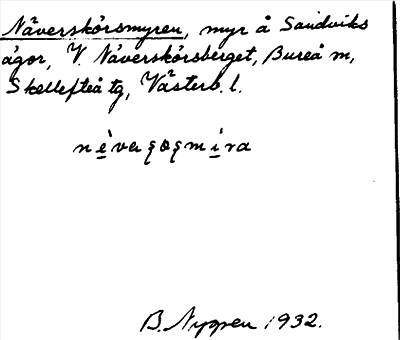 Nåverskörsmyren, myr å Sandviks
ägor, V. Nåverskörsberget, Bureå m,
Skellefteå tg, Västerb. l.
B. Nygren 1932.